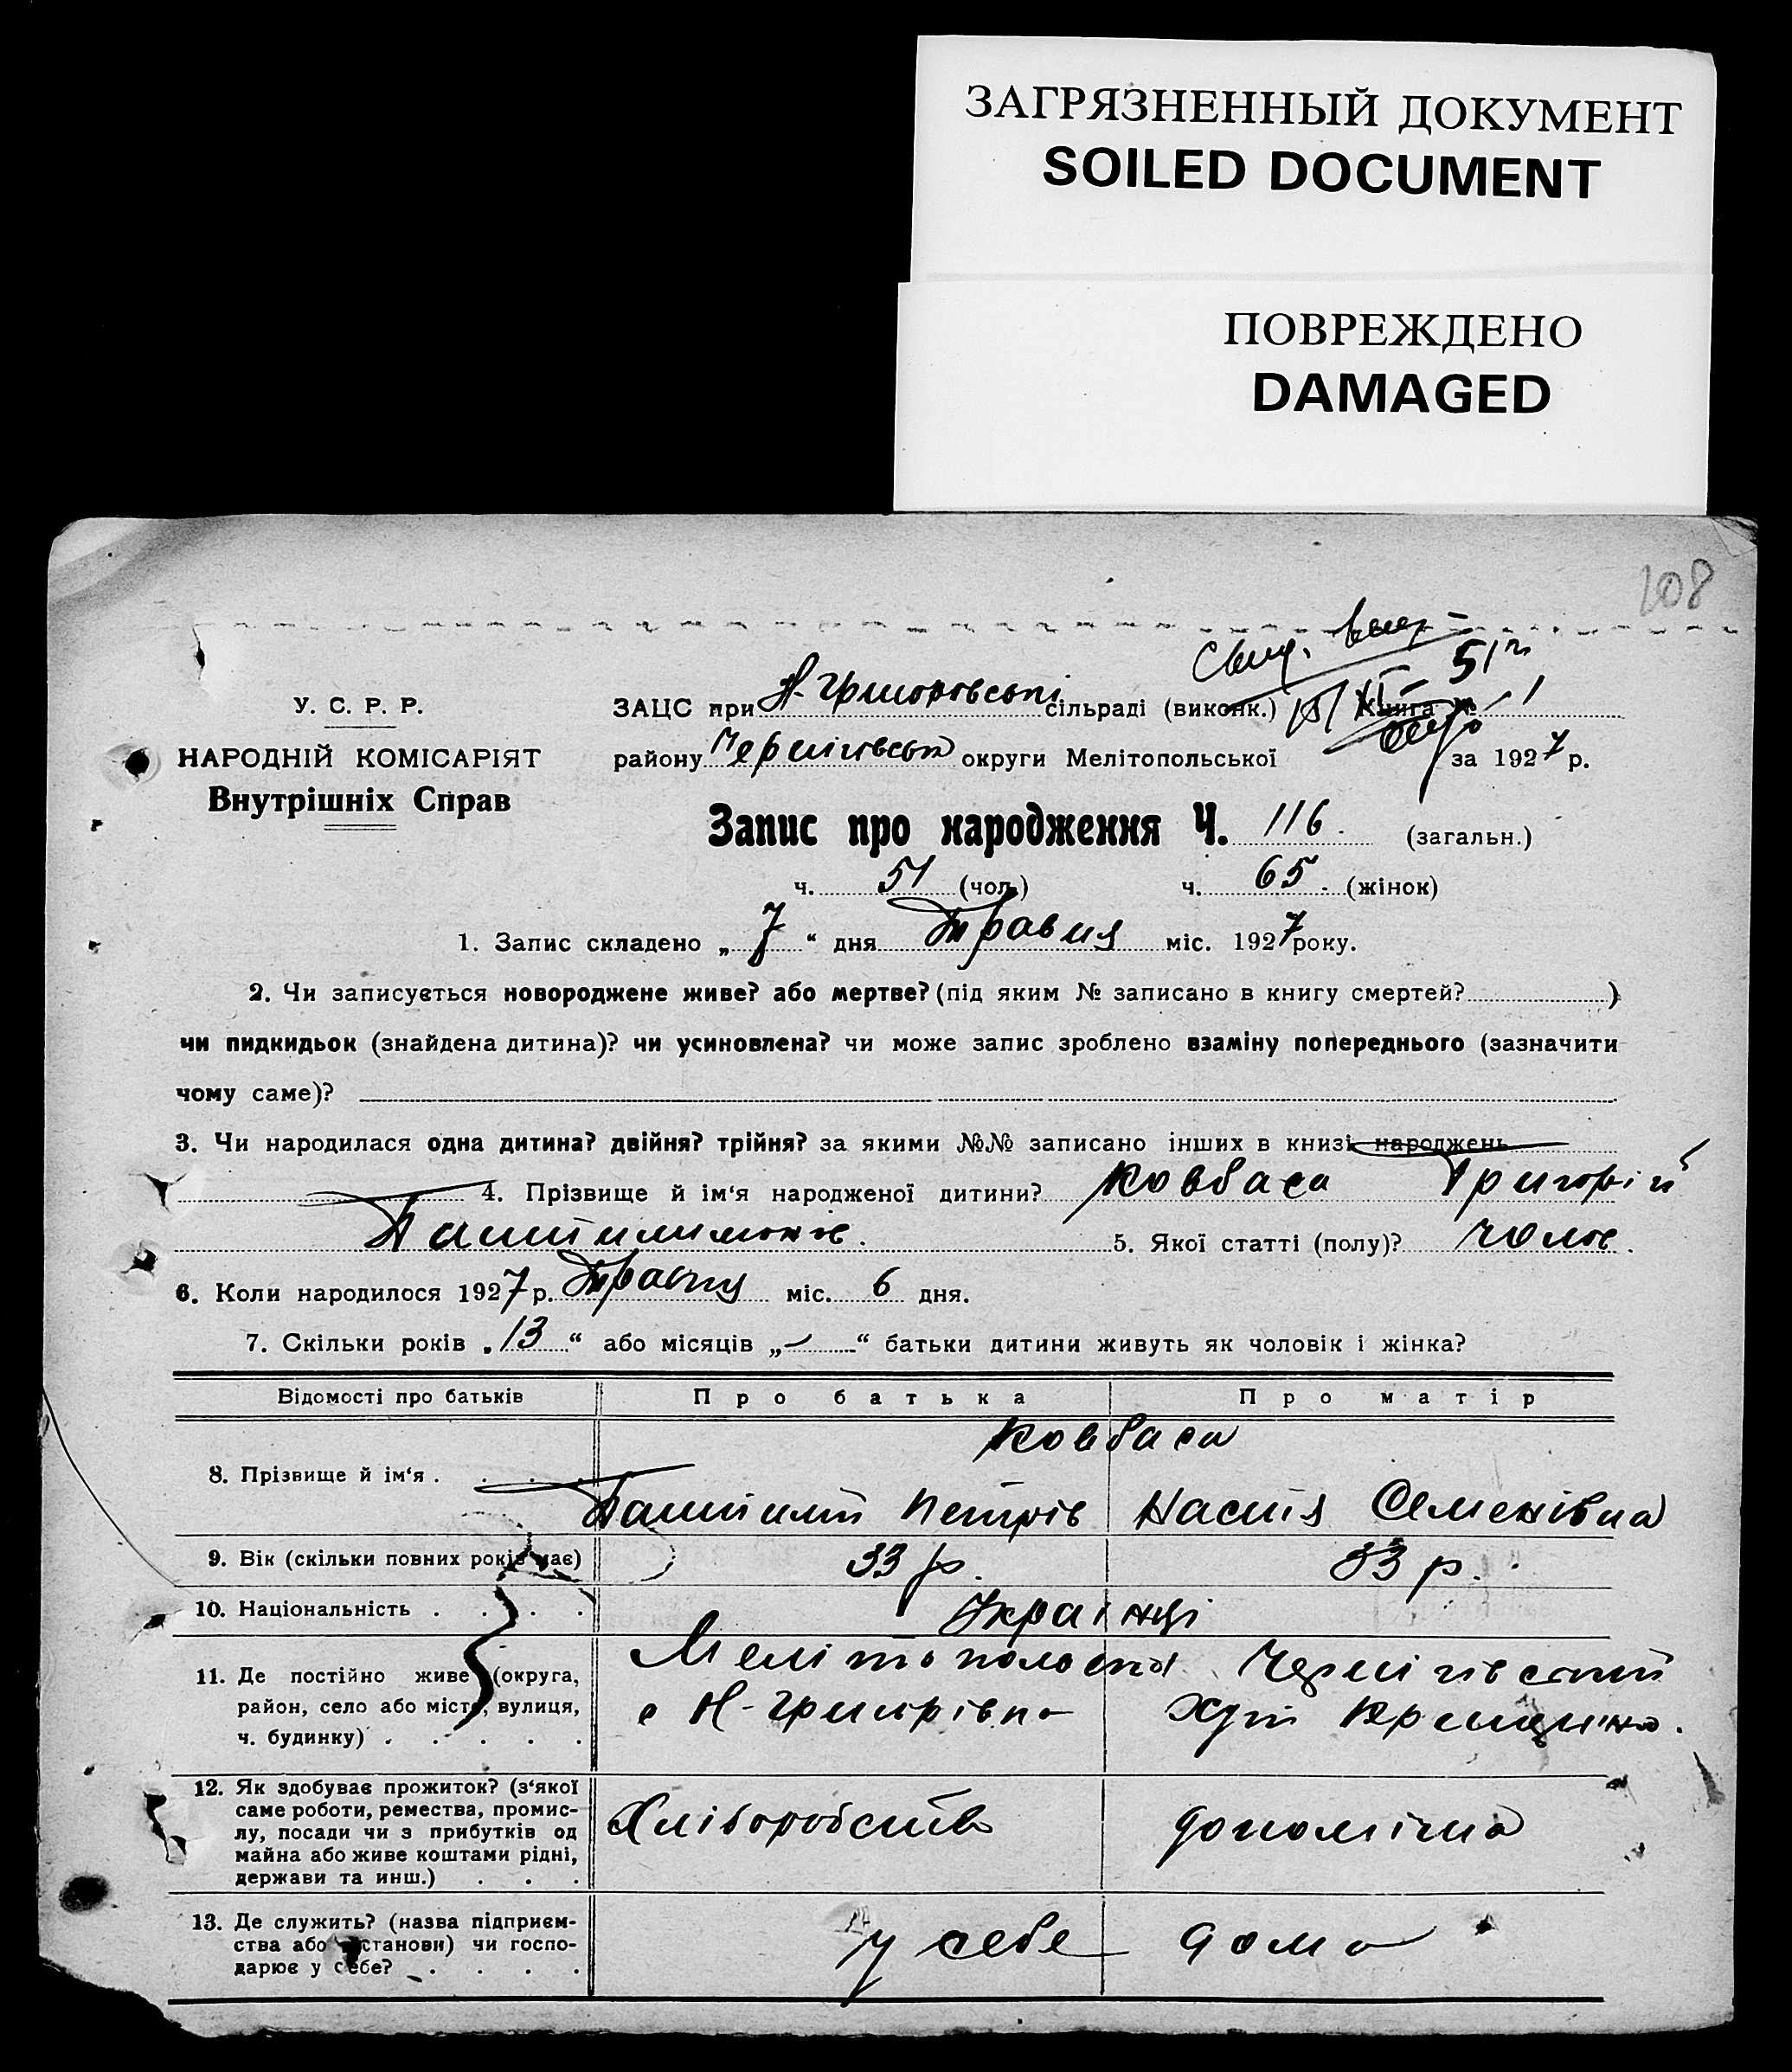 ЗАГРЯЗНЕННЫЙ ДОКУМЕНТ
SOILED DOCUMENT
ПОВРЕЖДЕНО
DAMAGED
108
У. С. Р. Р.
НАРОДНІЙ КОМІСАРІЯТ
Внутрішніх Справ
51 г.
ЗАЦС при Н-Григоровській сільраді (виконк.) Книга № 1
району Чернігівськ округи Мелітопольської за 1927 р.
Запис про народження Ч. 116. (загальн.)
ч. 51 (чол.) ч. 65. (жінок)
1. Запис складено „7“ дня Травня міс. 1927 року.
2. Чи записується новороджене живе? або мертве? (під яким № записано в книгу смертей? )
чи пидкидьок (знайдена дитина)? чи усиновлена? чи може запис зроблено взаміну попереднього (зазначити
чому саме)?
3. Чи народилася одна дитина? двійня? трійня? за якими №№ записано інших в книзі народжень
4. Прізвище й ім‘я народженої дитини? Ковбаса Григорій
Пантилимонов. 5. Якої статті (полу)? Чолов.
6. Коли народилося 1927 р. Травня міс. 6 дня.
7. Скільки років „13“ або місяців „–“ батьки дитини живуть як чоловік і жінка?
Відомості про батьків Про батька Про матір
Ковбаса
8. Прізвище й ім‘я . . . . Пантилим Петрів Настя Семенівна
9. Вік (скільки повних років має) 33 р. 33 р.
10. Національність . . . . Українці
11. Де постійно живе (округа, Мелітопольської Чернігівський
район, село або місто, вулиця, с Н-Григорівка
ч. будинку) . . . . .
12. Як здобуває прожиток? (з‘якої
саме роботи, ремества, промис-
лу, посади чи з прибутків од Хліборобство допоміга
майна або живе коштами рідні,
держави та инш.) . . .
13. Де служить? (назва підприєм-
ства або установи) чи госпо- у себе дома
дарює у себе? . . . .